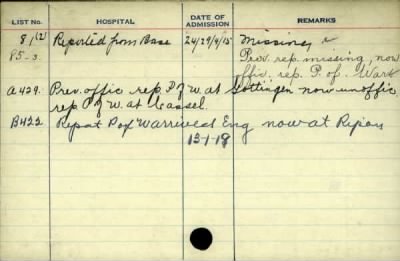 LIST No. HOSPITAL DATE OF ADMISSION REMARKS
81(2) Reported from Base 24/29/4/15 Missing
85-3. Prev. rep. missing, now
offic. rep. P. of War
A429. Prev. offic rep. P of W. at Gottingen now unoffic
rep P of W. at Cassel.
B422 Repat P of W arrived Eng now at Ripon
13-1-18